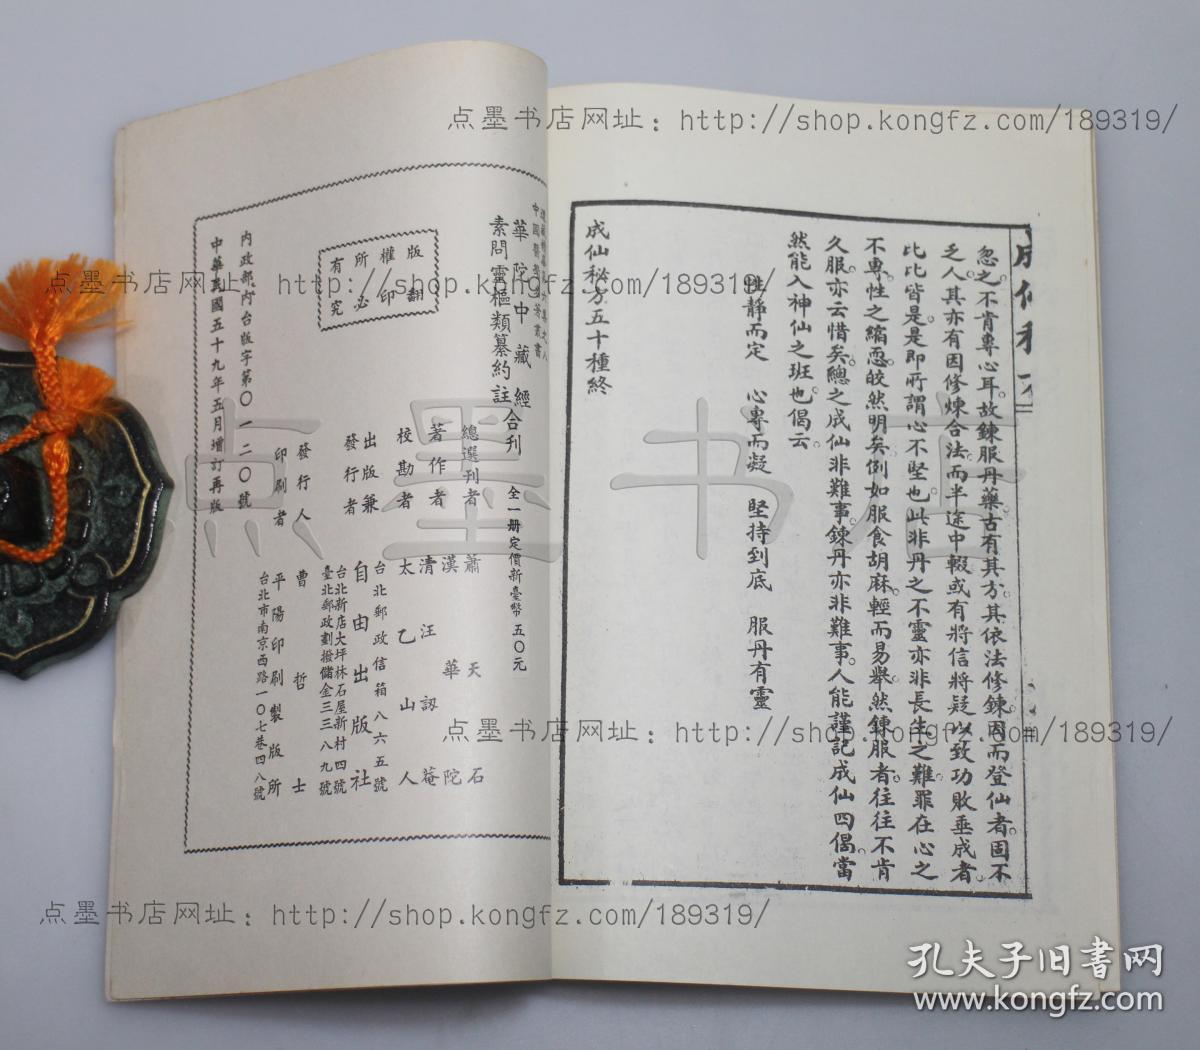 忽之。不肯專心耳。故鍊服丹藥。古有其方。其依法修鍊。因而登仙者。固不
乏人。其亦有因修煉合法。而半途中輟。或有將信將疑。以致功敗垂成者。
比比皆是。是即所謂心不堅也。此非丹之不靈。亦非長生之難。罪在心之
不專。性之縮恧。皎然明矣。例如服食胡麻。輕而易舉。然鍊服者。往往不肯
久服。亦云惜矣。總之成仙非難事。鍊丹亦非難事。人能謹記成仙四偈。當
然能入神仙之班也。偈云。
性靜而定　心專而凝　堅持到底　服丹有靈
成仙秘方五十種終
華陀中藏經
素問靈樞類纂約註
合刊
全一册定價新臺幣五〇元
版權所有
翻印必究
總選刊者　蕭天石
著作者　漢　華陀
清　汪訒菴
校勘者　太乙山人
出版兼
發行者　自由出版社
台北郵政信箱八六五號
台北新店大坪林石屋新村四號
臺北郵政劃撥儲金三三八九號
發行人　曹哲士
印刷者　平陽印刷製版所
台北市南京西路一〇七巷四八號
內政部內台版字第〇一二〇號
中華民國五十九年五月增訂再版
点墨书店网址：http://shop.kongfz.com/189319/
点墨书店
点墨书店网址：http://shop.kongfz.com/189319/
点墨书店网址：http://shop.kongfz.com/189319/
孔夫子旧书网
www.kongfz.com